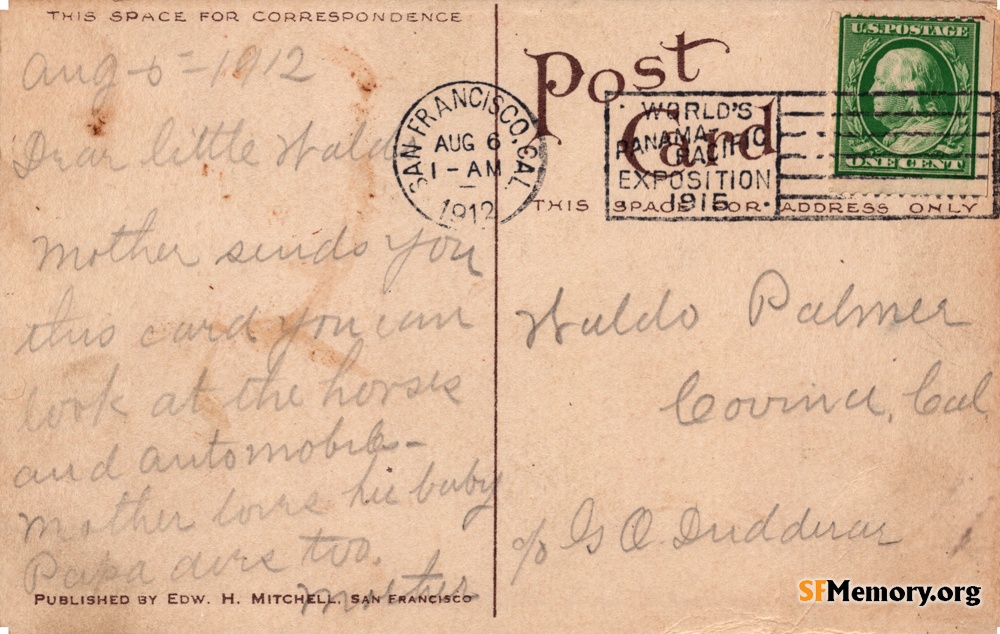 THIS SPACE FOR CORRESPONDENCE
Aug-5-1912
Dear little Waldo
Mother sends you
this card you can
look at the horses
and automobile-
Mother loves her baby
Papa does too.
Mother
PUBLISHED BY EDW. H. MITCHELL, SAN FRANCISCO
Post
Card
SAN FRANCISCO, CAL.
AUG 6
1-AM
1912
WORLD'S
PANAMA-PACIFIC
EXPOSITION
1915
U.S. POSTAGE
ONE CENT
THIS SPACE FOR ADDRESS ONLY
Waldo Palmer
Covina, Cal
c/o G O. Dudderar
SFMemory.org